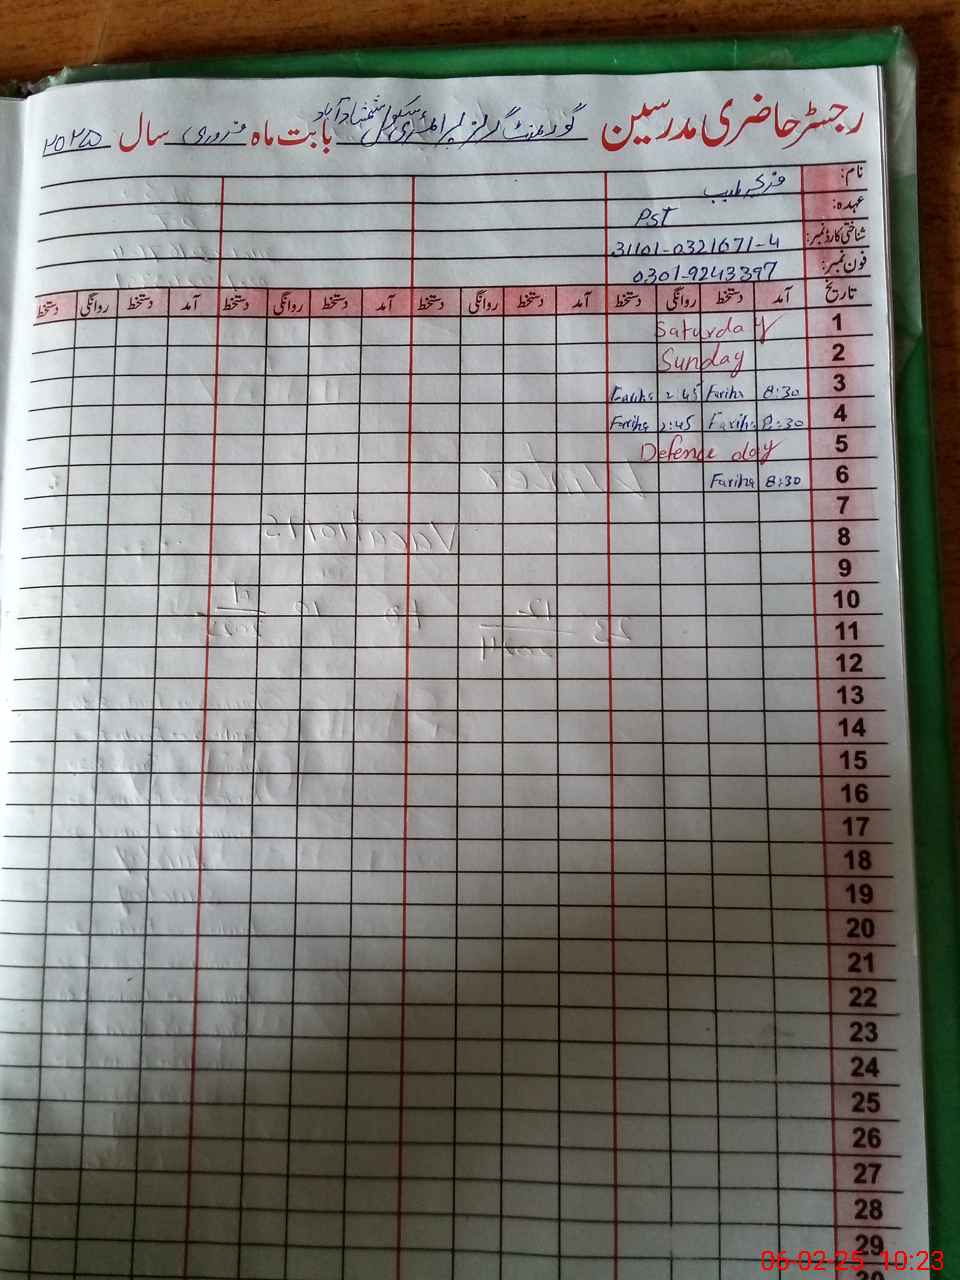 رجسٹر حاضری مدرسین گورنمنٹ گرلز پرائمری سکول شمشاد آباد بابت ماہ فروری سال ۲۰۲۵
نام: طیب
عہدہ: PST
شناختی کارڈ نمبر: 31101-0321671-4
فون نمبر: 0301-9243397
تاریخ آمد دستخط روانگی دستخط آمد دستخط روانگی دستخط آمد دستخط روانگی دستخط آمد دستخط روانگی دستخط
1 Saturday
2 Sunday
3 8:30 Fariha 2:45 Fariha
4 8:30 Fariha 2:45 Fariha
5 Defence day
6 8:30 Fariha
7
8
9
10
11
12
13
14
15
16
17
18
19
20
21
22
23
24
25
26
27
28
29
30
06-02-25 10:23